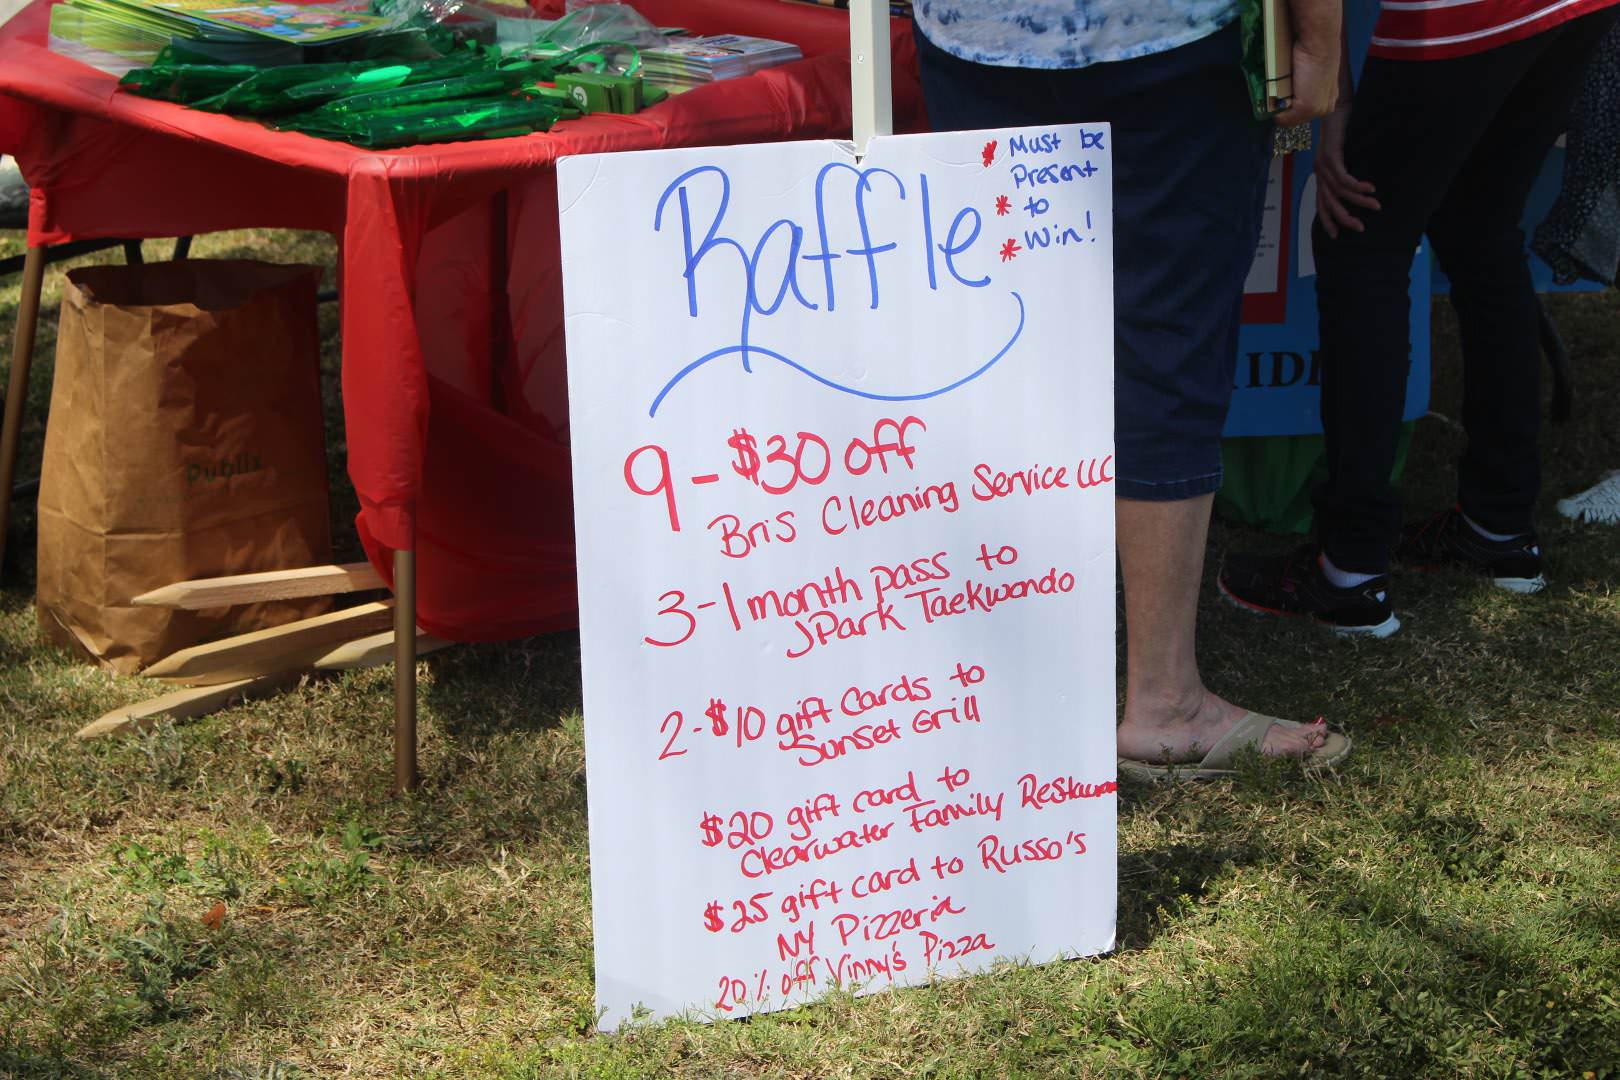 Raffle
* Must be
Present
* to
* Win!
9 - $30 off
Bris Cleaning Service LLC
3 - 1 month pass to
JPark Taekwondo
2 - $10 gift cards to
Sunset Grill
$20 gift card to
Clearwater Family Restaurant
$25 gift card to Russo's
NY Pizzeria
20% off Vinny's Pizza
Publix